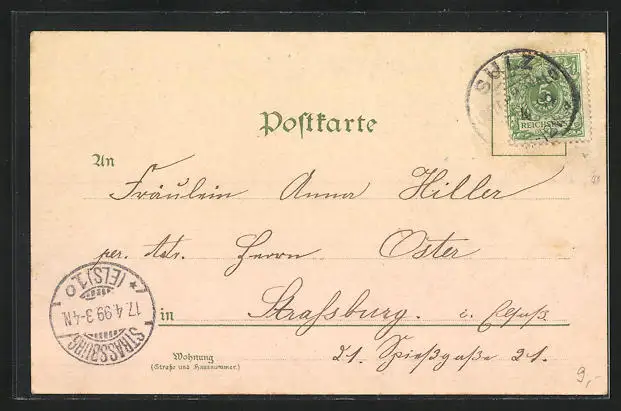 SULZ
5
REICHSPOST
Postkarte
An
Fräulein Anna Hiller
per. Adr. Herrn Oster
in Straßburg. i. Elsaß.
21. Spießgasse 21.
Wohnung
(Straße und Hausnummer.)
STRASSBURG
17.4.99.3-4N
*(ELS)1o
9,-